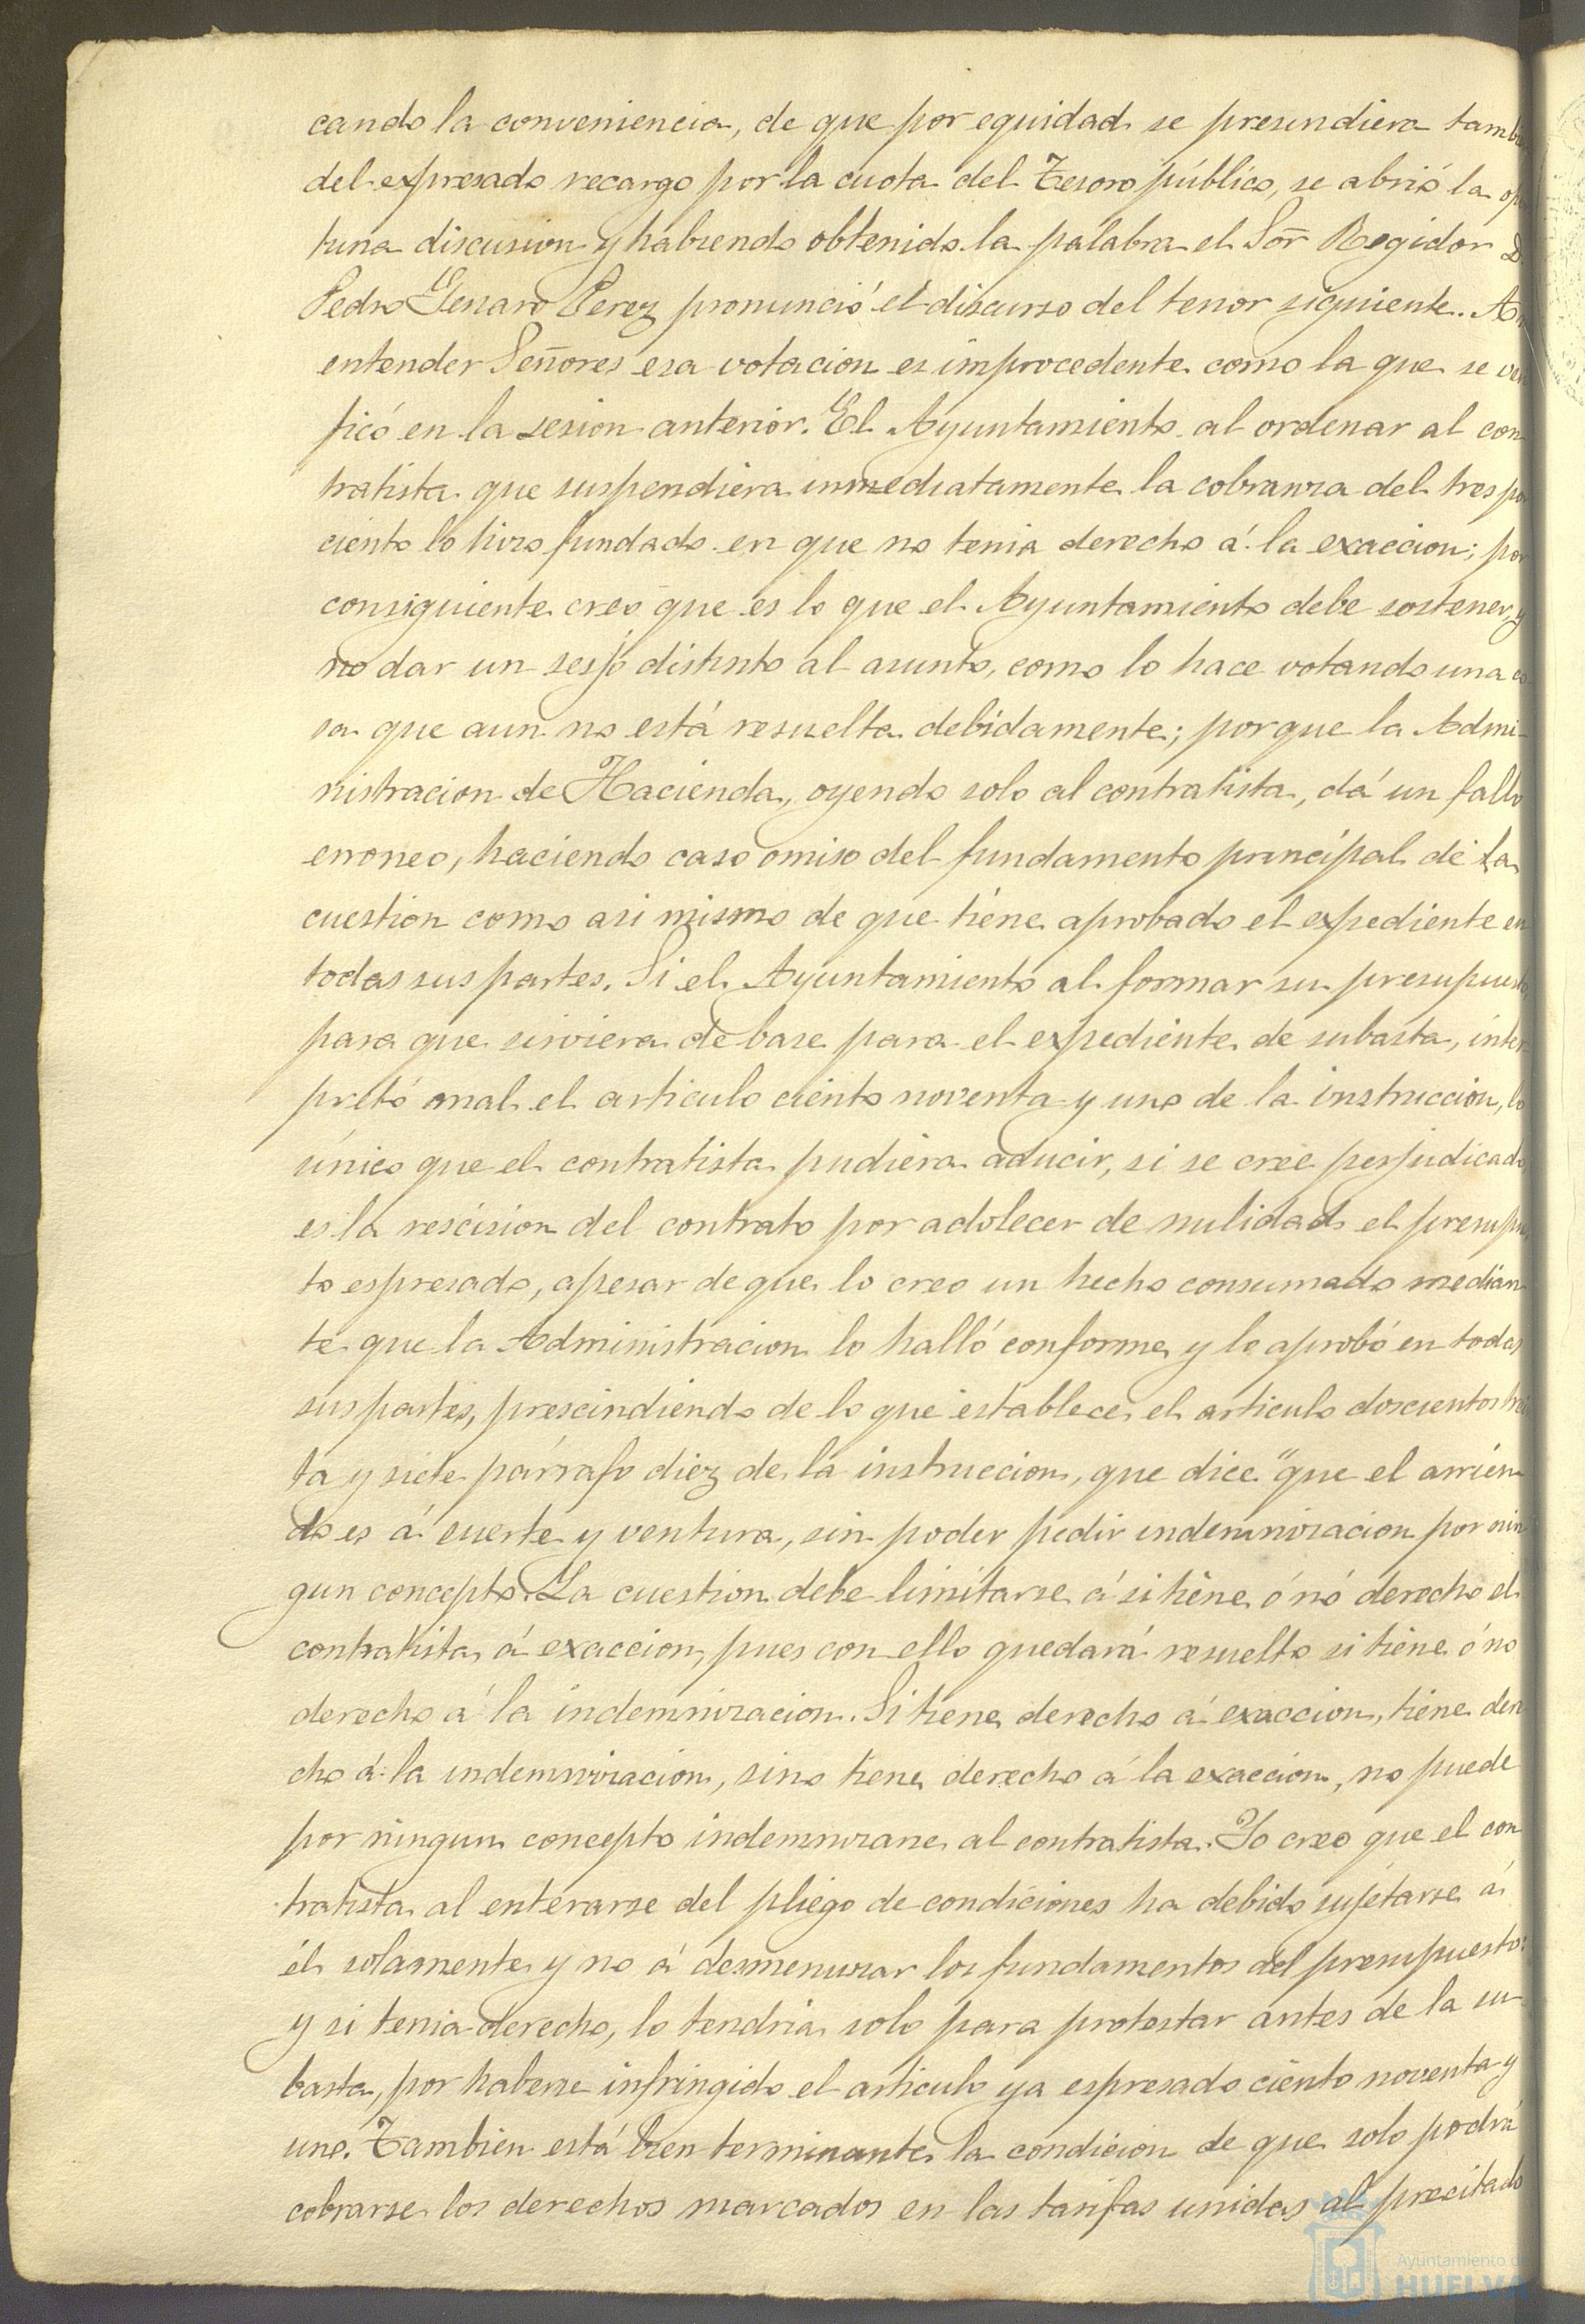 cando la conveniencia, de que por equidad se presindiera tamb
del expresado recargo por la cuota del Tesoro público, se abrió la op
tuna discusion y habiendo obtenido la palabra el Soñ Regidor D
Pedro Genaro Perez pronunció el discurso del tenor siguiente. A
entender Señores esa votacion es improcedente como la que se veri
ficó en la sesion anterior. El Ayuntamiento al ordenar al con
tratista que suspendiera inmediatamente la cobranza del tres po
ciento lo hizo fundado en que no tenia derecho á la exaccion; por
consiguiente creo que es lo que el Ayuntamiento debe sostener, y
no dar un sesjo distinto al asunto, como lo hace votando una co
sa que aun no está resuelta debidamente; porque la Admi-
nistracion de Hacienda, oyendo solo al contratista, dá un fallo
erroneo, haciendo caso omiso del fundamento principal de la
cuestion como asi mismo de que tiene aprobado el expediente en
todas sus partes. Si el Ayuntamiento al formar su presupuesto
para que sirviera de base para el expediente de subasta, inter
pretó mal el articulo ciento noventa y uno de la instruccion, lo
único que el contratista pudiera aducir, si se cree perjudicado
es la rescision del contrato por adolecer de nulidad el presupu
to espresado, apesar de que lo creo un hecho consumado median
te que la Administracion lo halló conforme y lo aprobó en todas
sus partes, prescindiendo de lo que establece el articulo doscientos trein
ta y siete párrafo diez de la instruccion, que dice "que el arrien-
do es á suerte y ventura, sin poder pedir indemnizacion por nin
gun concepto. La cuestion debe limitarse á si tiene ó nó derecho el
contratista á exaccion, pues con ello quedará resuelto si tiene ó no
derecho á la indemnizacion. Si tiene derecho á exaccion, tiene dere
cho á la indemnizacion, sino tiene derecho á la exaccion, no puede
por ningun concepto indemnizarse al contratista. Yo creo que el con
tratista al enterarse del pliego de condiciones ha debido sujetarse á
él solamente y no á desmenuzar los fundamentos del presupuesto:
y si tenia derecho, lo tendria solo para protestar antes de la su-
basta, por haberse infringido el articulo ya espresado ciento noventa y
uno. Tambien está bien terminante la condicion de que solo podrá
cobrarse los derechos marcados en las tarifas unidas al precitado
Ayuntamiento de
HUELVA